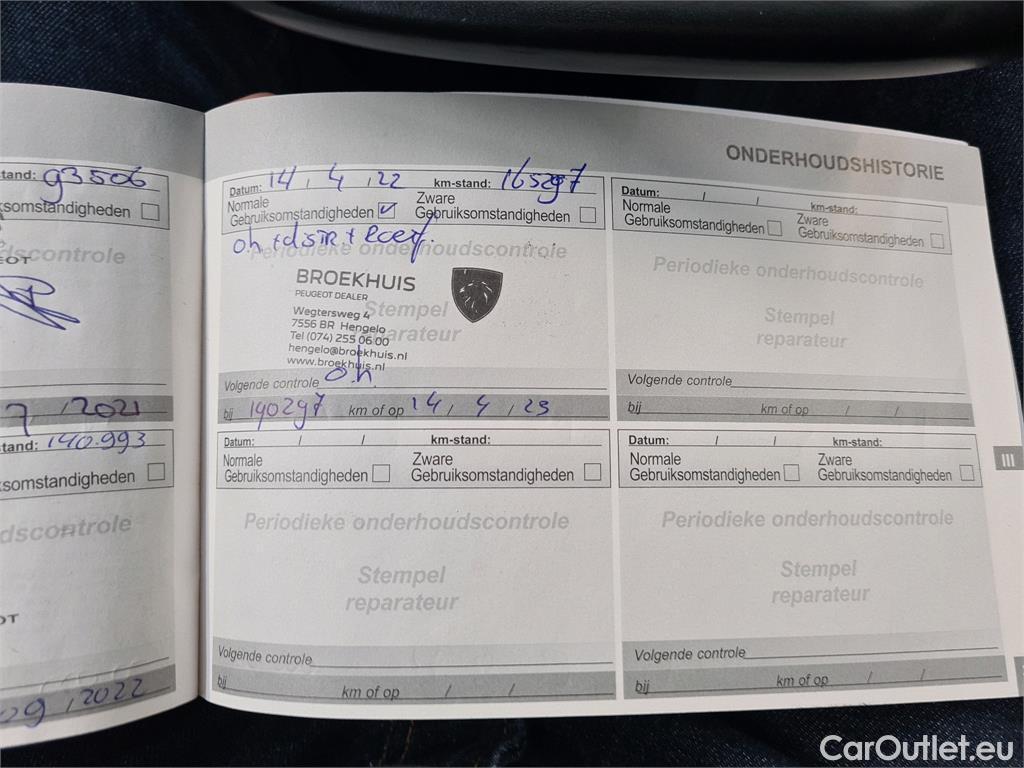 stand: 93506
Gebruiksomstandigheden
controle
7 / 2021
stand: 140.993
Gebruiksomstandigheden
controle
09 / 2022
ONDERHOUDSHISTORIE
Datum: 14 / 4 / 22 km-stand: 165297
Normale Zware
Gebruiksomstandigheden Gebruiksomstandigheden
oh +
Periodieke onderhoudscontrole
BROEKHUIS
PEUGEOT DEALER
Stempel
reparateur
Wegtersweg 4
7556 BR Hengelo
Tel (074) 255 06 00
hengelo@broekhuis.nl
www.broekhuis.nl
Volgende controle o.h.
bij 190297 km of op 14 / 4 / 23
Datum: / / km-stand:
Normale Zware
Gebruiksomstandigheden Gebruiksomstandigheden
Periodieke onderhoudscontrole
Stempel
reparateur
Volgende controle
bij km of op / /
Datum: / / km-stand:
Normale Zware
Gebruiksomstandigheden Gebruiksomstandigheden
Periodieke onderhoudscontrole
Stempel
reparateur
Volgende controle
bij km of op / /
Datum: / / km-stand:
Normale Zware
Gebruiksomstandigheden Gebruiksomstandigheden
Periodieke onderhoudscontrole
Stempel
reparateur
Volgende controle
bij km of op / /
III
CarOutlet.eu